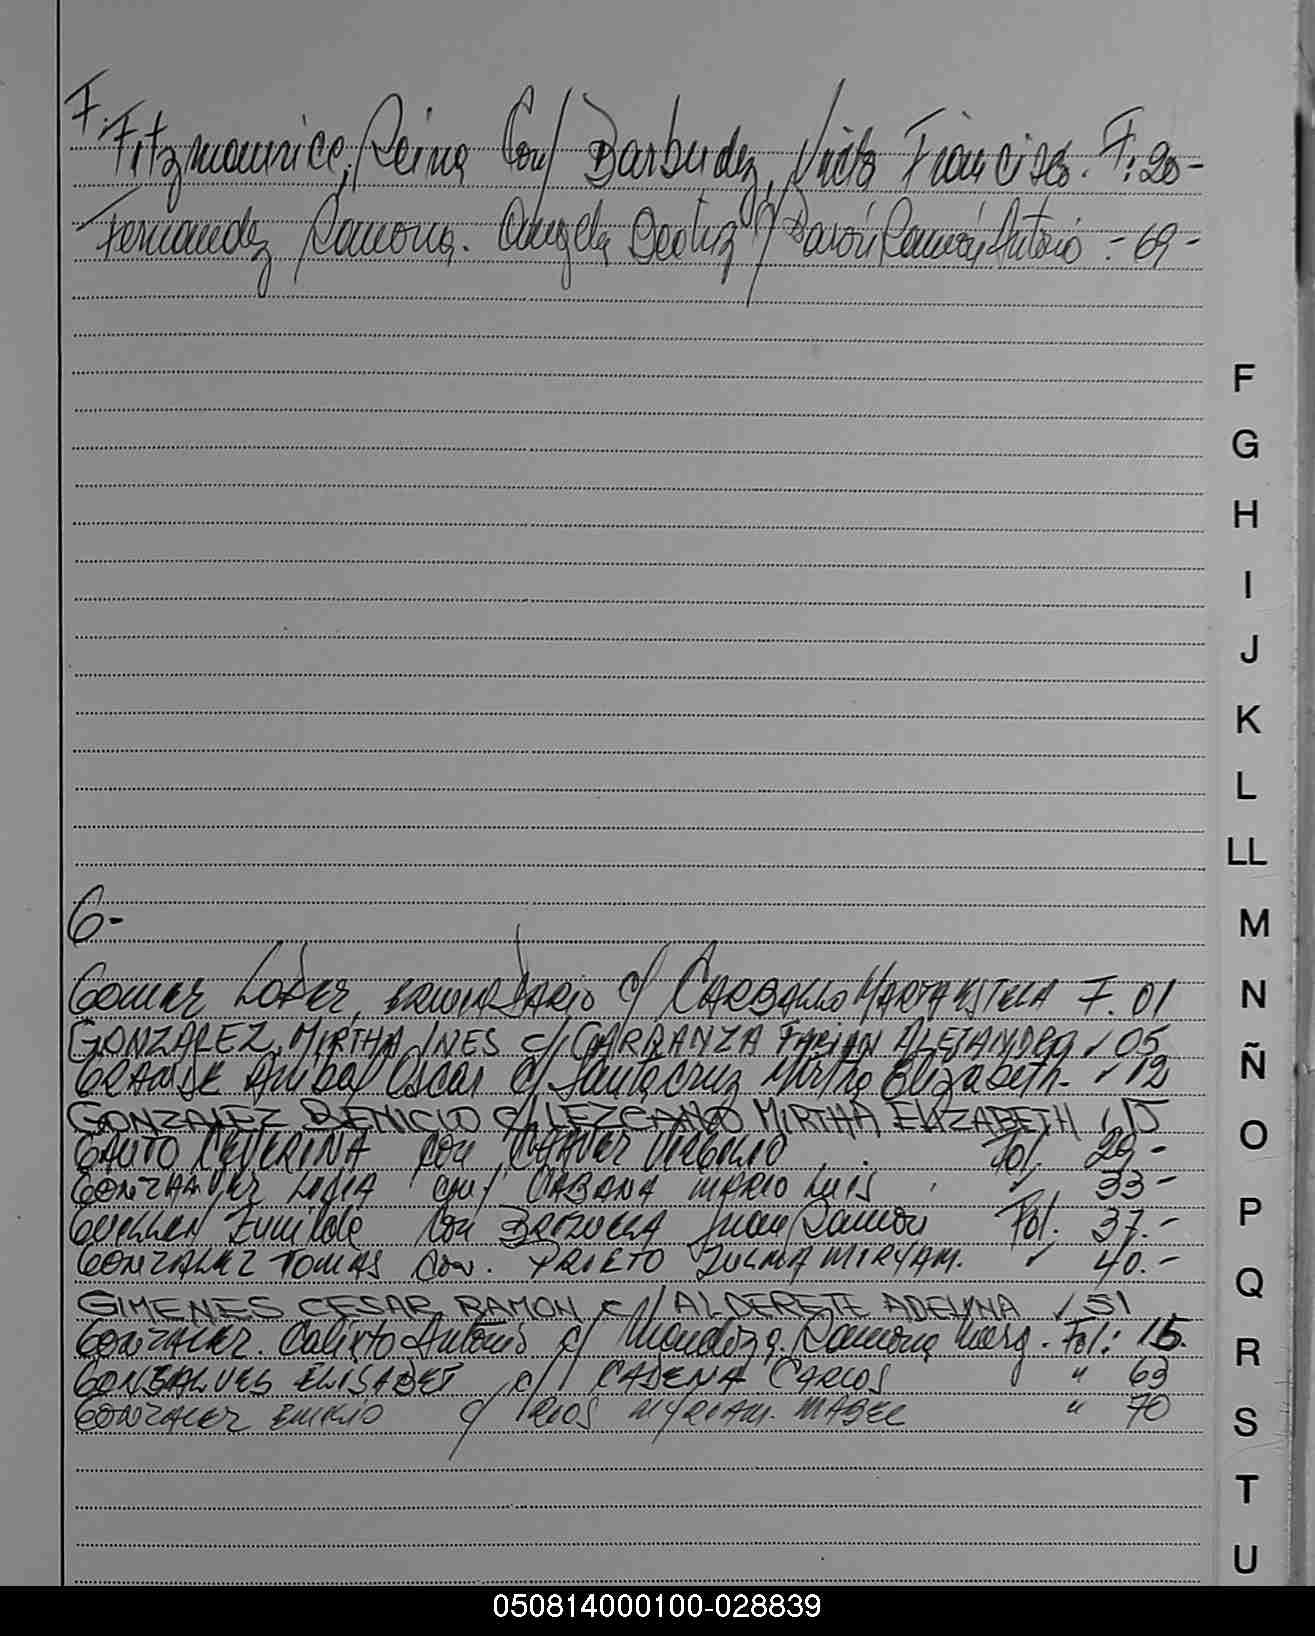 F.
Fitzmaurice, Reina Con/ Barbudez, Victo Francisco. F: 20-
Fernandez Ramona. Angela Beatriz c/ Pavón Ramón Antonio - 69 -
F
G
H
I
J
K
L
LL
M
G-
Gomez Lopez, Dario c/ CARBALLO MARTA ESTELA F. 01
N
GONZALEZ, MIRTHA INES c/ CARRANZA FABIAN ALEJANDRO 05
Anibal Oscar c/ Santa Cruz Mirtha Elizabeth - 12
Ñ
GONZALEZ BENICIO c/ LEZCANO MIRTHA ELIZABETH 15
O
GAUTO CEVERINA con Fol. 29-
LIDIA con/ CABANA MARIO LUIS 33-
P
Con BRIZUELA Juan Ramon Fol. 37.-
GONZALEZ TOMAS Con. PRIETO ZULMA MIRYAM. 40.-
Q
GIMENES CESAR RAMON c/ ALDERETE ADELINA 51
GONZALEZ. Calixto Antonio c/ Mendoza, Ramona Marg. Fol: 15.
R
GONSALVES ELISABET c/ CADENA CARLOS " 63
GONZALEZ EMILIO c/ RIOS MYRIAM. MABEL " 70
S
T
U
050814000100-028839